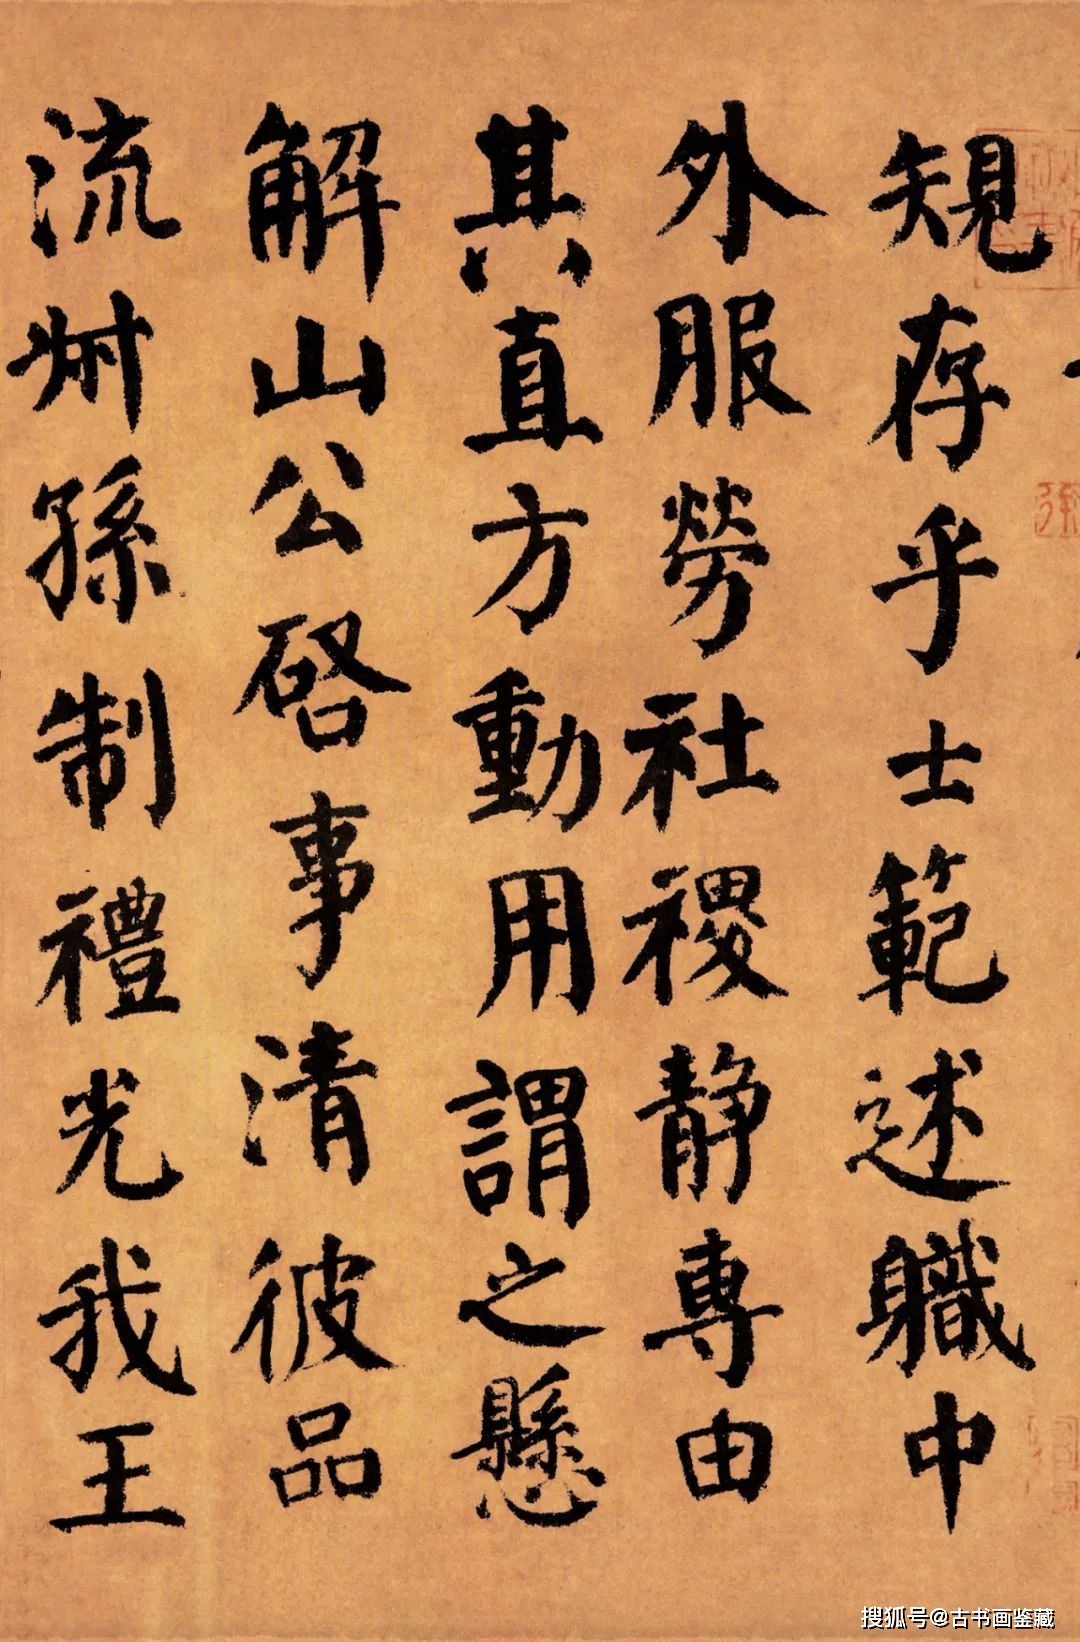 規存乎士範述職中
外服勞社稷静專由
其直方動用謂之懸
解山公啓事清彼品
流叔孫制禮光我王
搜狐号@古书画鉴藏